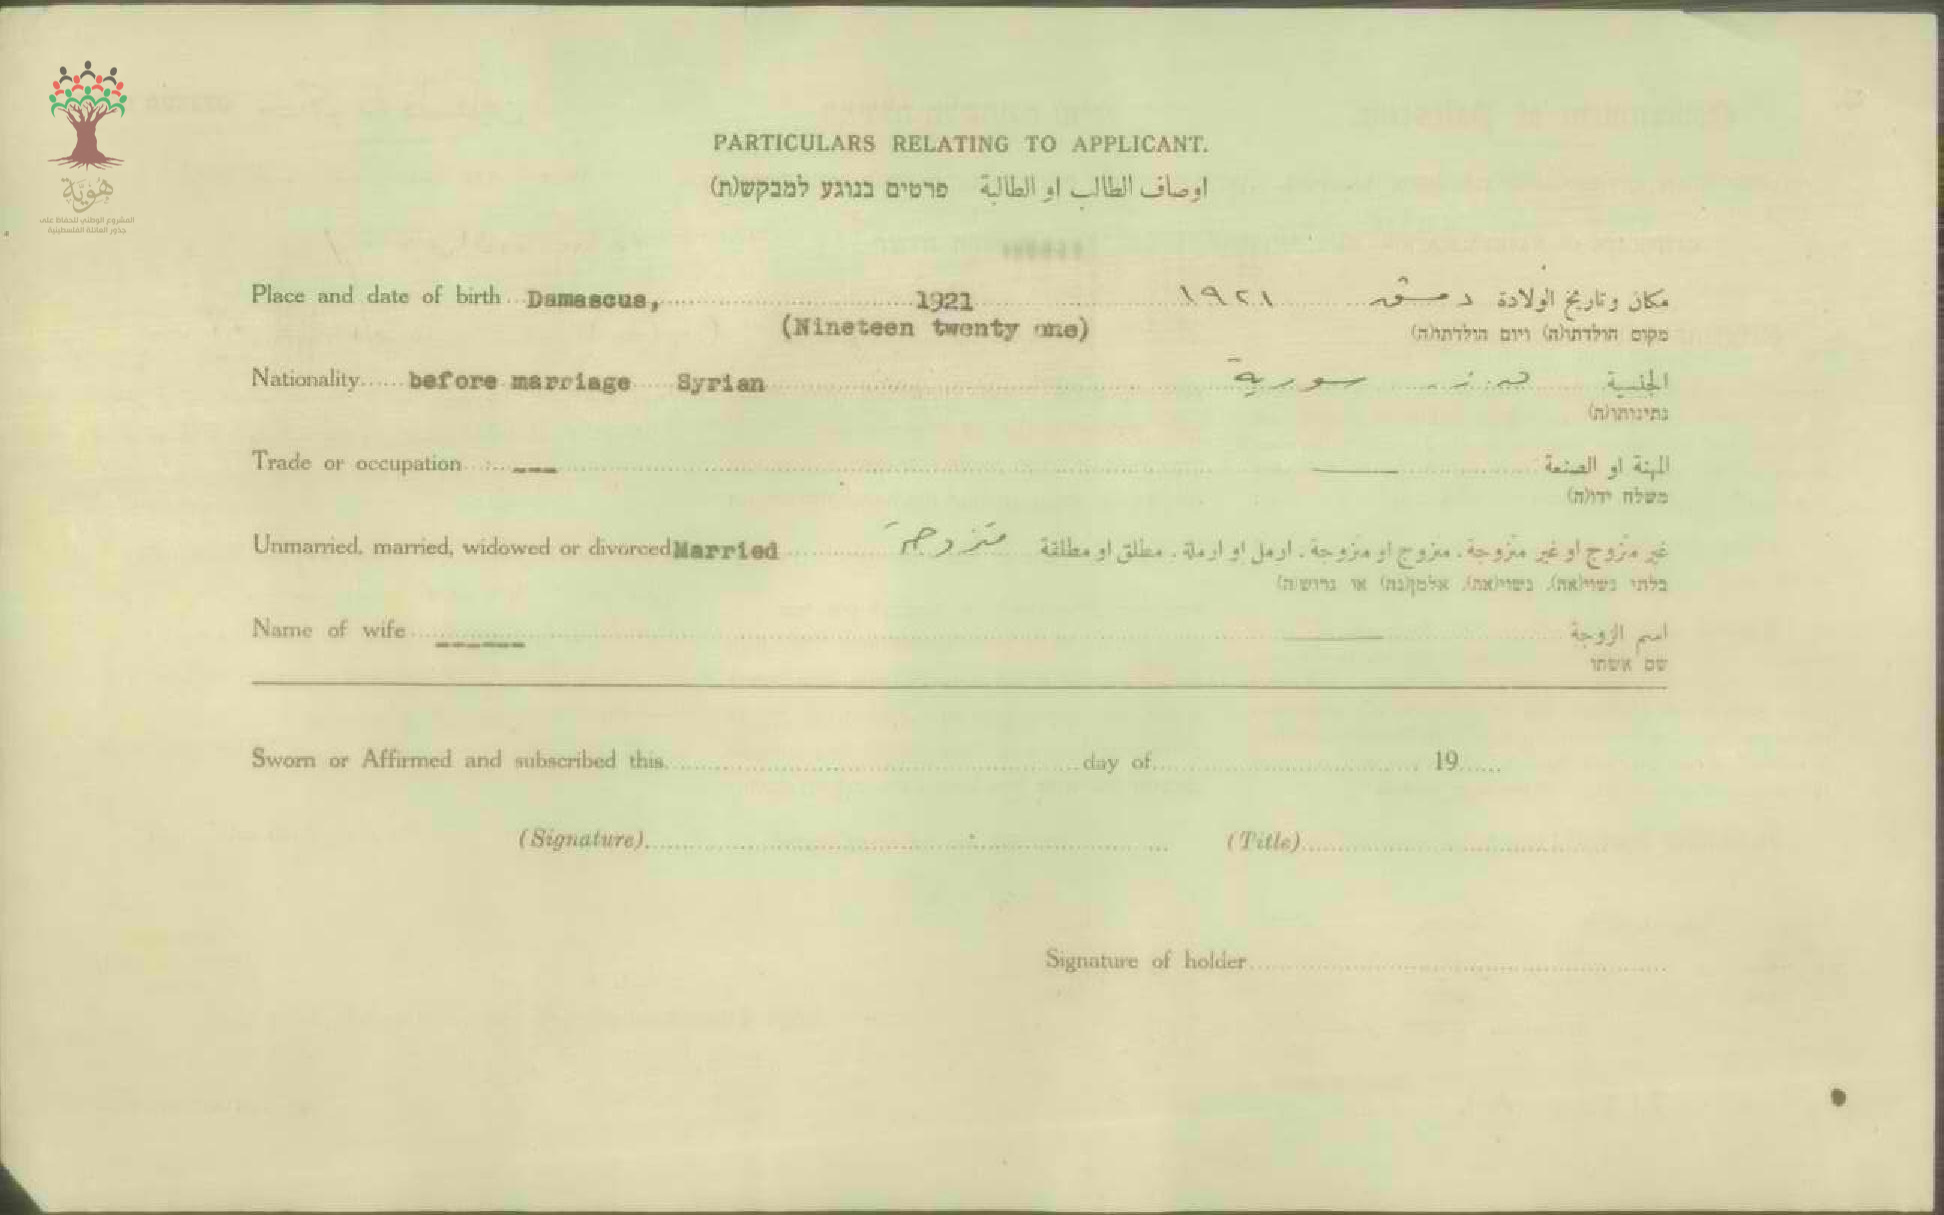 هُوِيَّة
المشروع الوطني للحفاظ على
جذور العائلة الفلسطينية
PARTICULARS RELATING TO APPLICANT.
اوصاف الطالب او الطالبة פרטים בנוגע למבקש(ת)
Place and date of birth Damascus, 1921 ١٩٢١ دمشق مكان وتاريخ الولادة
(Nineteen twenty one) מקום הולדתו(ה) ויום הולדתו(ה)
Nationality before marriage Syrian سورية الجنسية
נתינותו(ה)
Trade or occupation --- المهنة او الصنعة
משלח ידו(ה)
Unmarried, married, widowed or divorced Married متزوجة غير متزوج او غير متزوجة. متزوج او متزوجة. ارمل او ارملة. مطلق او مطلقة
בלתי נשוי(אה), נשוי(אה), אלמן(נה) או גרוש(ה)
Name of wife ------ اسم الزوجة
שם אשתו
Sworn or Affirmed and subscribed this day of 19
(Signature) (Title)
Signature of holder